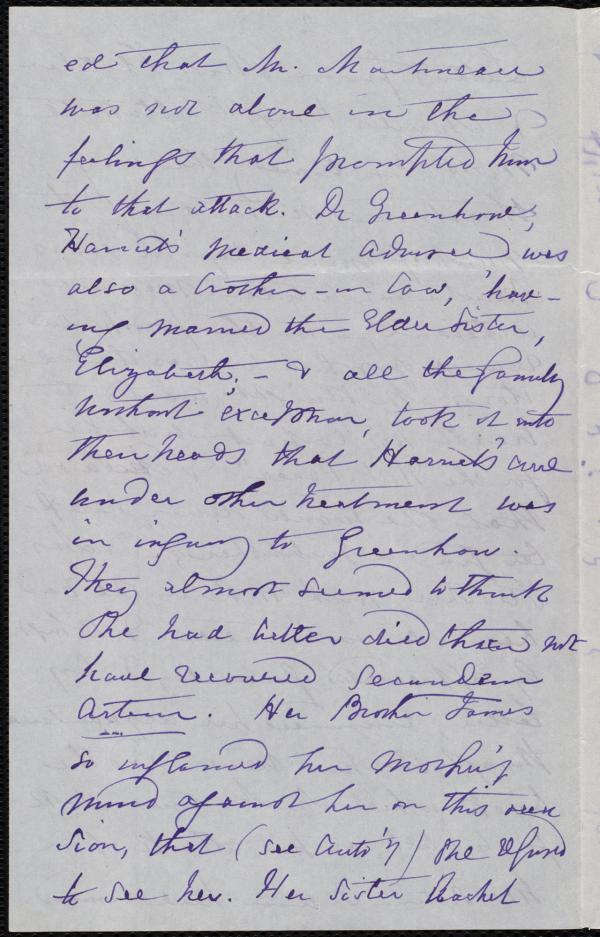 ed that Mr. Martineau
was not alone in the
feelings that prompted him
to that attack. Dr Greenhow,
Harriet's medical adviser was
also a brother-in law, hav-
ing married the Elder Sister,
Elizabeth; - & all the family
without exception, took it into
their heads that Harriet's cure
under other treatment was
in injury to Greenhow.
They almost seemed to think
she had better died than not
have recovered secundem
artem. Her Brother James
so inflamed her Mother's
mind against her on this occa
sion, that (see Auto'y) she refused
to see her. Her Sister Rachel